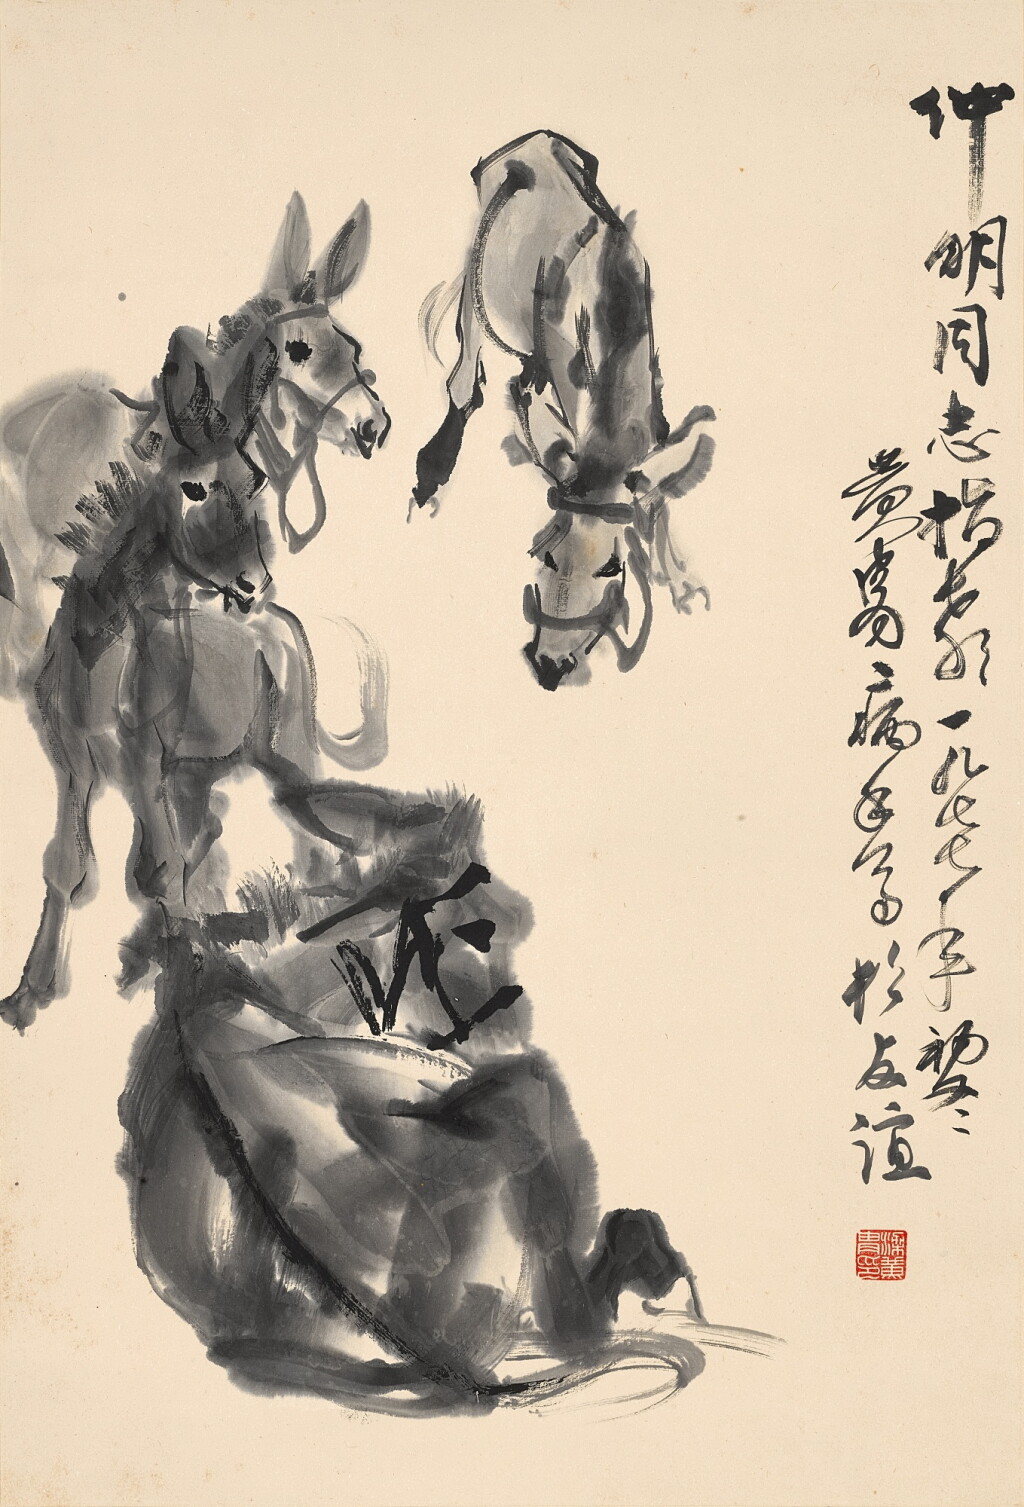 仲明同志指教一九七七年初冬
黄胄病手写於友谊
梁黄胄印